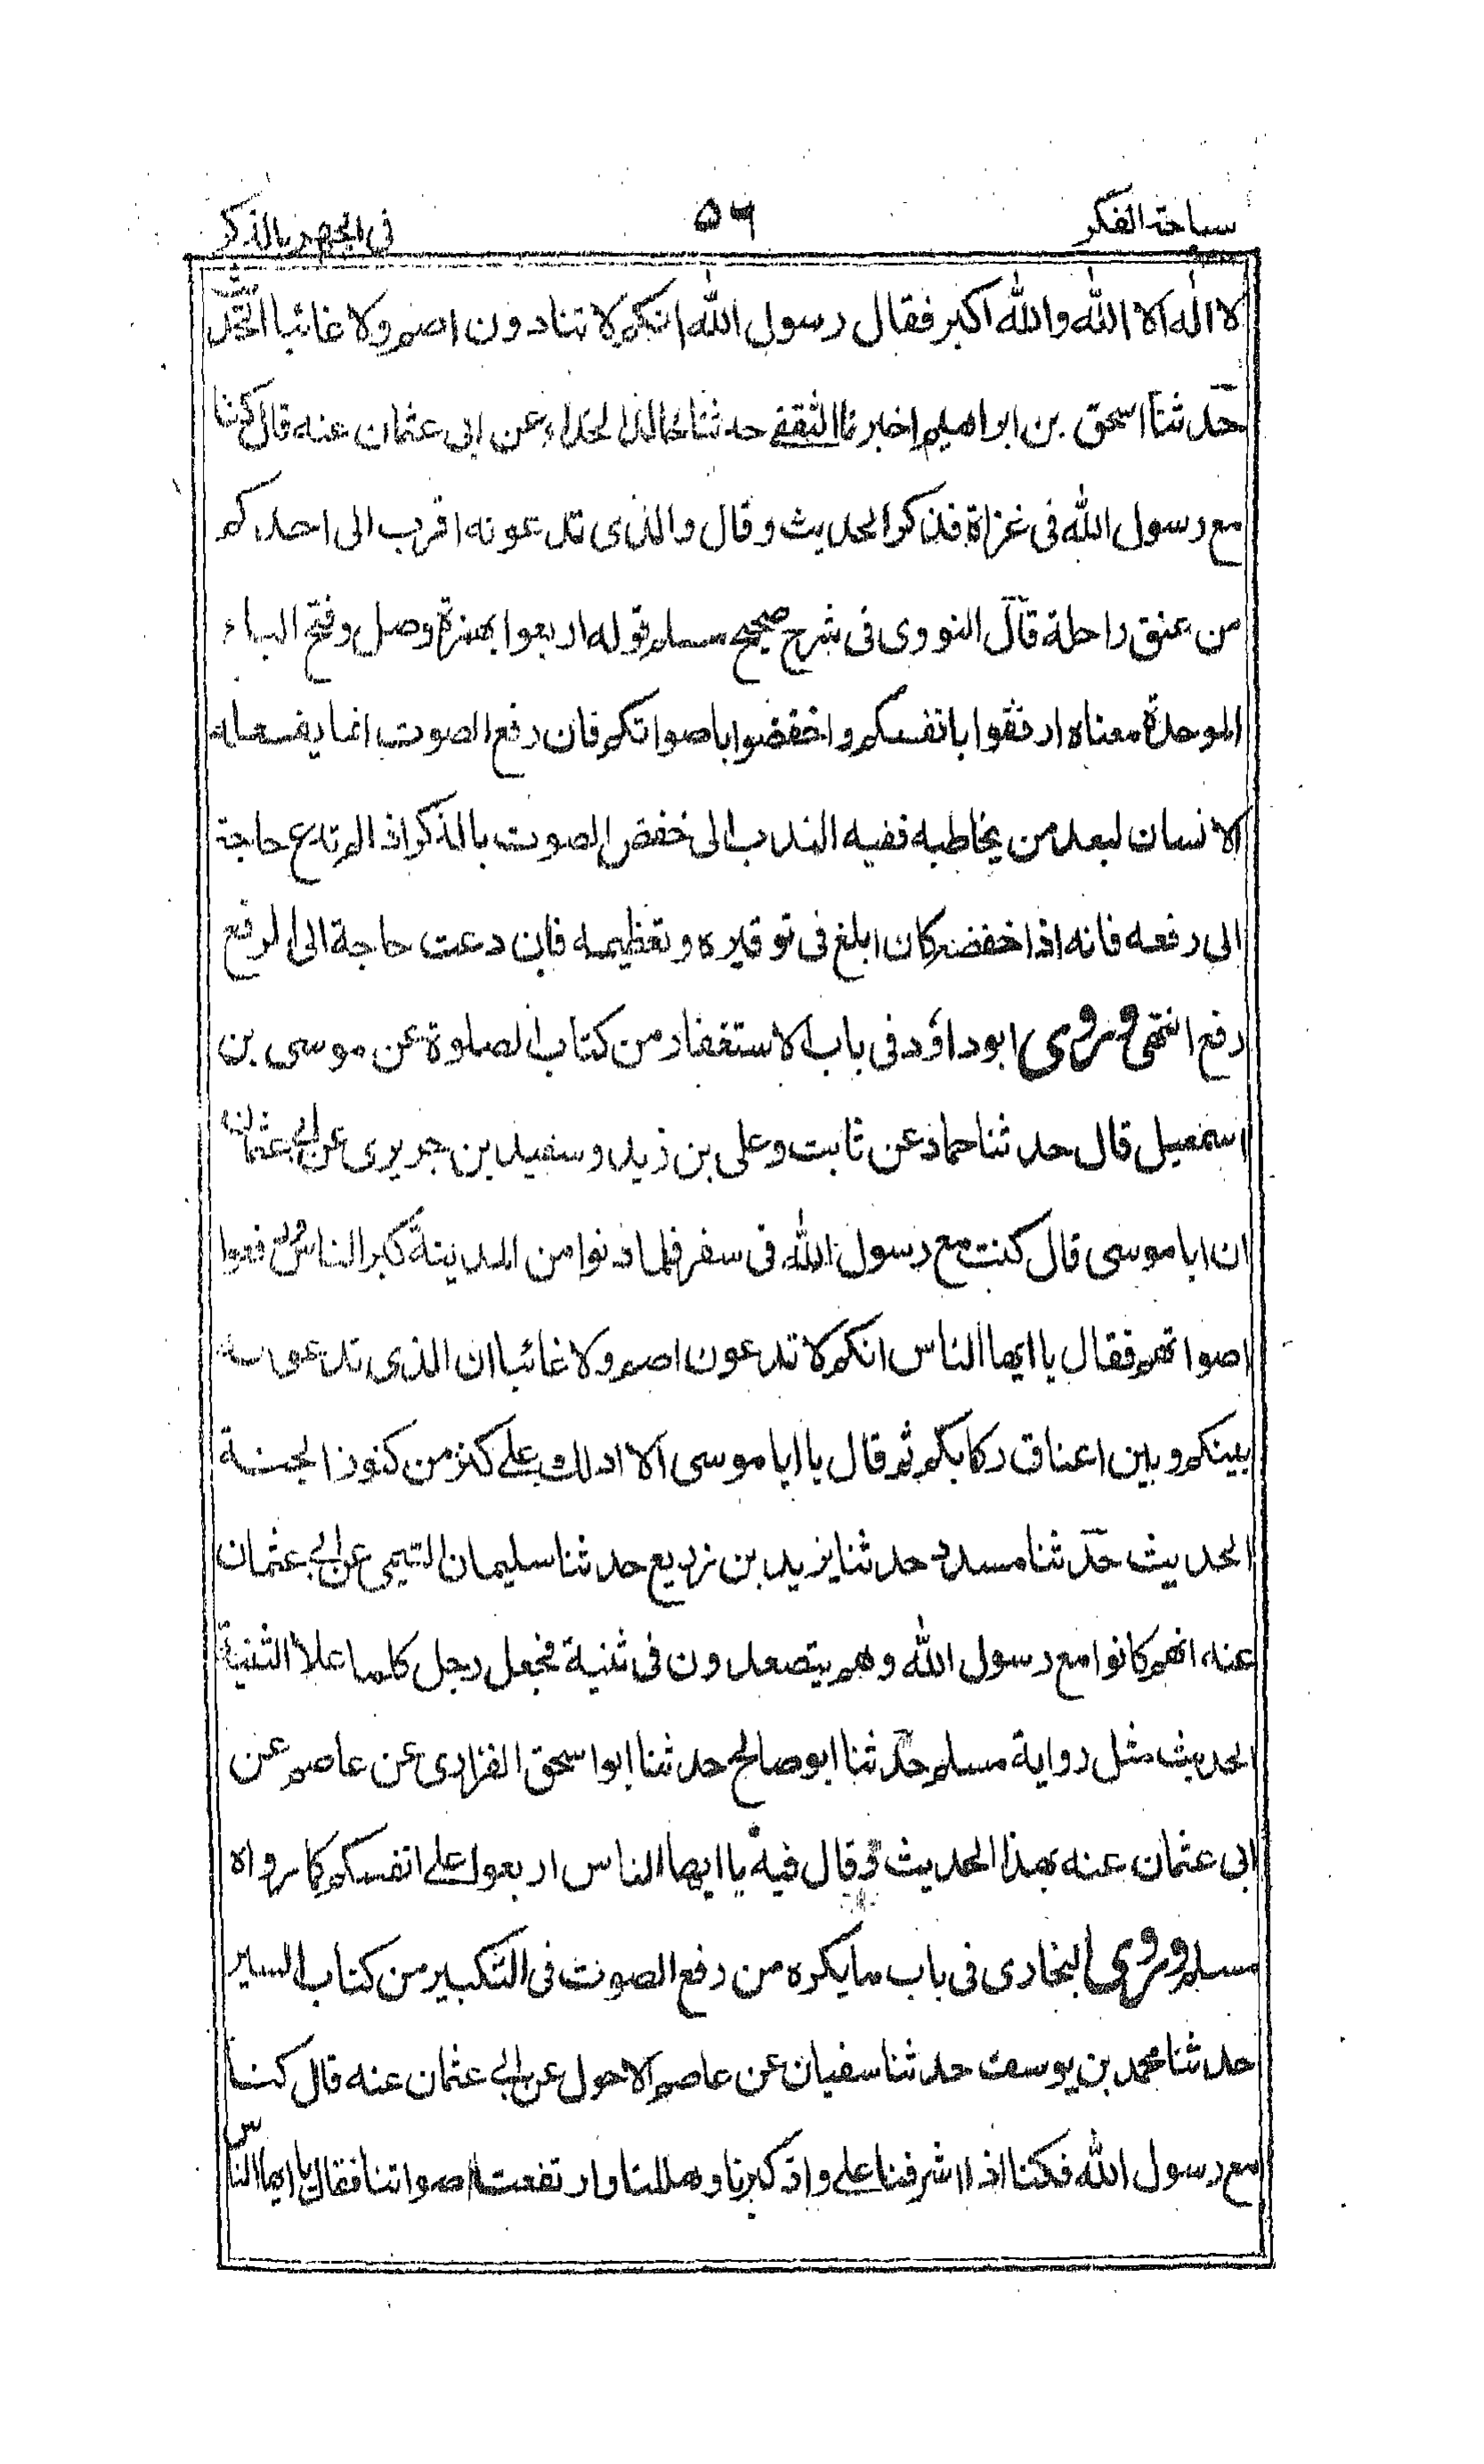 سباحة الفكر ٥٦ في الجهر بالذكر
لا اله الا الله والله اكبر فقال رسول الله انكم لا تنادون اصم ولا غائبا الحديث
حدثنا اسحق بن ابراهيم اخبرنا الثقفي حدثنا خالد الحذاء عن ابي عثمان عنه قال كنا
مع رسول الله في غزاة فذكر الحديث وقال والذي تدعونه اقرب الى احدكم
من عنق راحلة قال النووي في شرح صحيح مسلم قوله اربعوا بهمزة وصل وفتح الباء
الموحدة معناه ارفقوا بانفسكم واخفضوا باصواتكم فان رفع الصوت انما يفعله
الانسان لبعد من يخاطبه ففيه الندب الى خفض الصوت بالذكر اذا لم تدع حاجة
الى رفعه فانه اذا خفضه كان ابلغ في توقيره وتعظيمه فان دعت حاجة الى الرفع
رفع انتهى وروى ابو داؤد في باب الاستغفار من كتاب الصلوة عن موسى بن
اسمعيل قال حدثنا حماد عن ثابت وعلي بن زيد وسعيد بن جريري عن ابي عثمان
ان ابا موسى قال كنت مع رسول الله في سفر فلما دنوا من المدينة كبر الناس ورفعوا
اصواتهم فقال يا ايها الناس انكم لا تدعون اصم ولا غائبا ان الذي تدعونه
بينكم وبين اعناق ركابكم ثم قال يا ابا موسى الا ادلك على كنز من كنوز الجنة
الحديث حدثنا مسدد حدثنا يزيد بن زريع حدثنا سليمان التيمي عن ابي عثمان
عنه انهم كانوا مع رسول الله وهم يتصعدون في ثنية فجعل رجل كلما علا الثنية
الحديث مثل رواية مسلم حدثنا ابو صالح حدثنا ابو اسحق الفزاري عن عاصم عن
ابي عثمان عنه بهذا الحديث وقال فيه يا ايها الناس اربعوا على انفسكم كما رواه
مسلم وروى البخاري في باب ما يكره من رفع الصوت في التكبير من كتاب السير
حدثنا محمد بن يوسف حدثنا سفيان عن عاصم الاحول عن ابي عثمان عنه قال كنا
مع رسول الله فكنا اذا اشرفنا على واد كبرنا وهللنا وارتفعت اصواتنا فقال يا ايها الناس